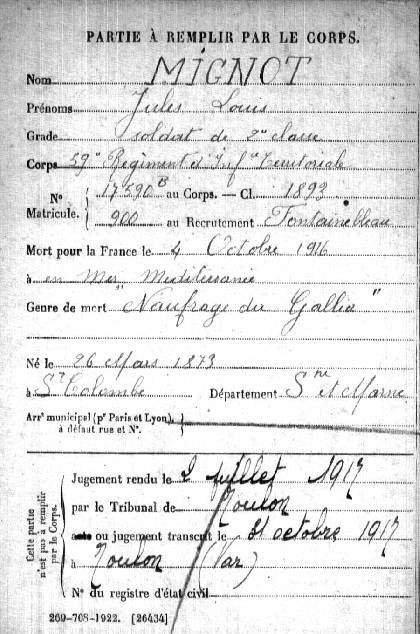 PARTIE À REMPLIR PAR LE CORPS.
Nom MIGNOT
Prénoms Jules Louis
Grade soldat de 2e classe
Corps 59e Régiment d'Infie Territoriale
No 17590B au Corps. — Cl. 1893
Matricule. 900 au Recrutement Fontainebleau
Mort pour la France le 4 Octobre 1916
à en Mer Mediterranée
Genre de mort Naufrage du "Gallia"
Né le 26 Mars 1873
à St Colombe Département Sne et Marne
Arrt municipal (pr Paris et Lyon),
à défaut rue et No.
Cette partie
n'est pas à remplir
par le Corps.
Jugement rendu le 2 juillet 1917
par le Tribunal de Toulon
acte ou jugement transcrit le 31 octobre 1917
à Toulon (Var)
No du registre d'état civil
269-708-1922. [26434]